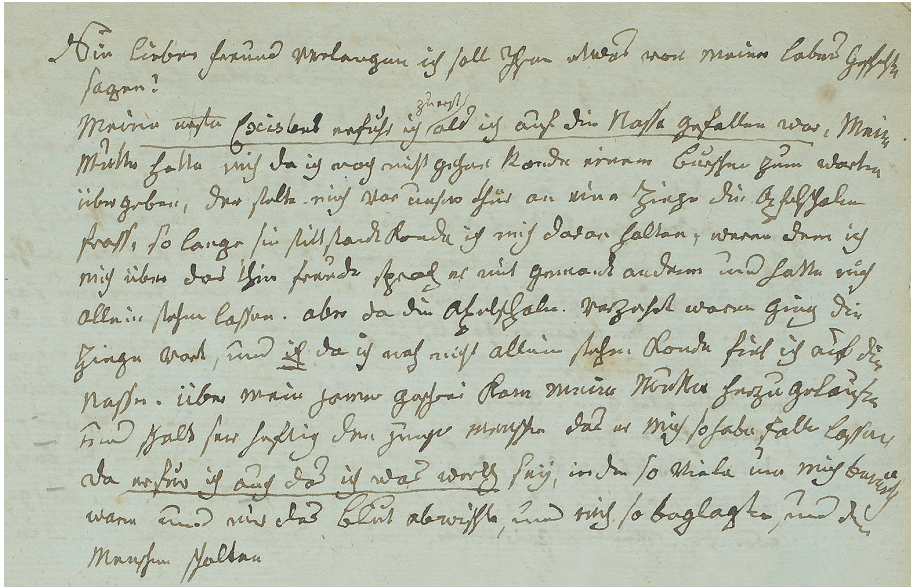 Sie lieber freund verlangen ich soll Ihnen etwas von meiner lebens Geschichte
sagen?
Meine erste Existens erfuhr ich zuerst als ich auf die Nasse gefallen war, Meine
Mutter hatte mich da ich noch nicht gehen konde einem burschen zum warten
übergeben, der stelte mich vor unsre thür an eine Ziege die Apfelschalen
frass, so lange sie still stand konde ich mich daran halten, wen dem ich
mich über das thier freude sprach er mit jemand anderm und hatte mich
allein stehn lassen. aber da die Apfelschalen verzehrt waren ging die
Ziege vort, und ich da ich noch nicht allein stehn konde fiel ich auf die
Nasse. über mein jamer geschrei kam meine Mutter herzu gelaufen
und schalt ser heftig den junge menschen das er mich so habe falle lassen
da erfur ich auch das ich was werth sey, in dem so viele um mich
waren und mir das blut abwischte, und mich so beglagten, und den
Menschen schalten